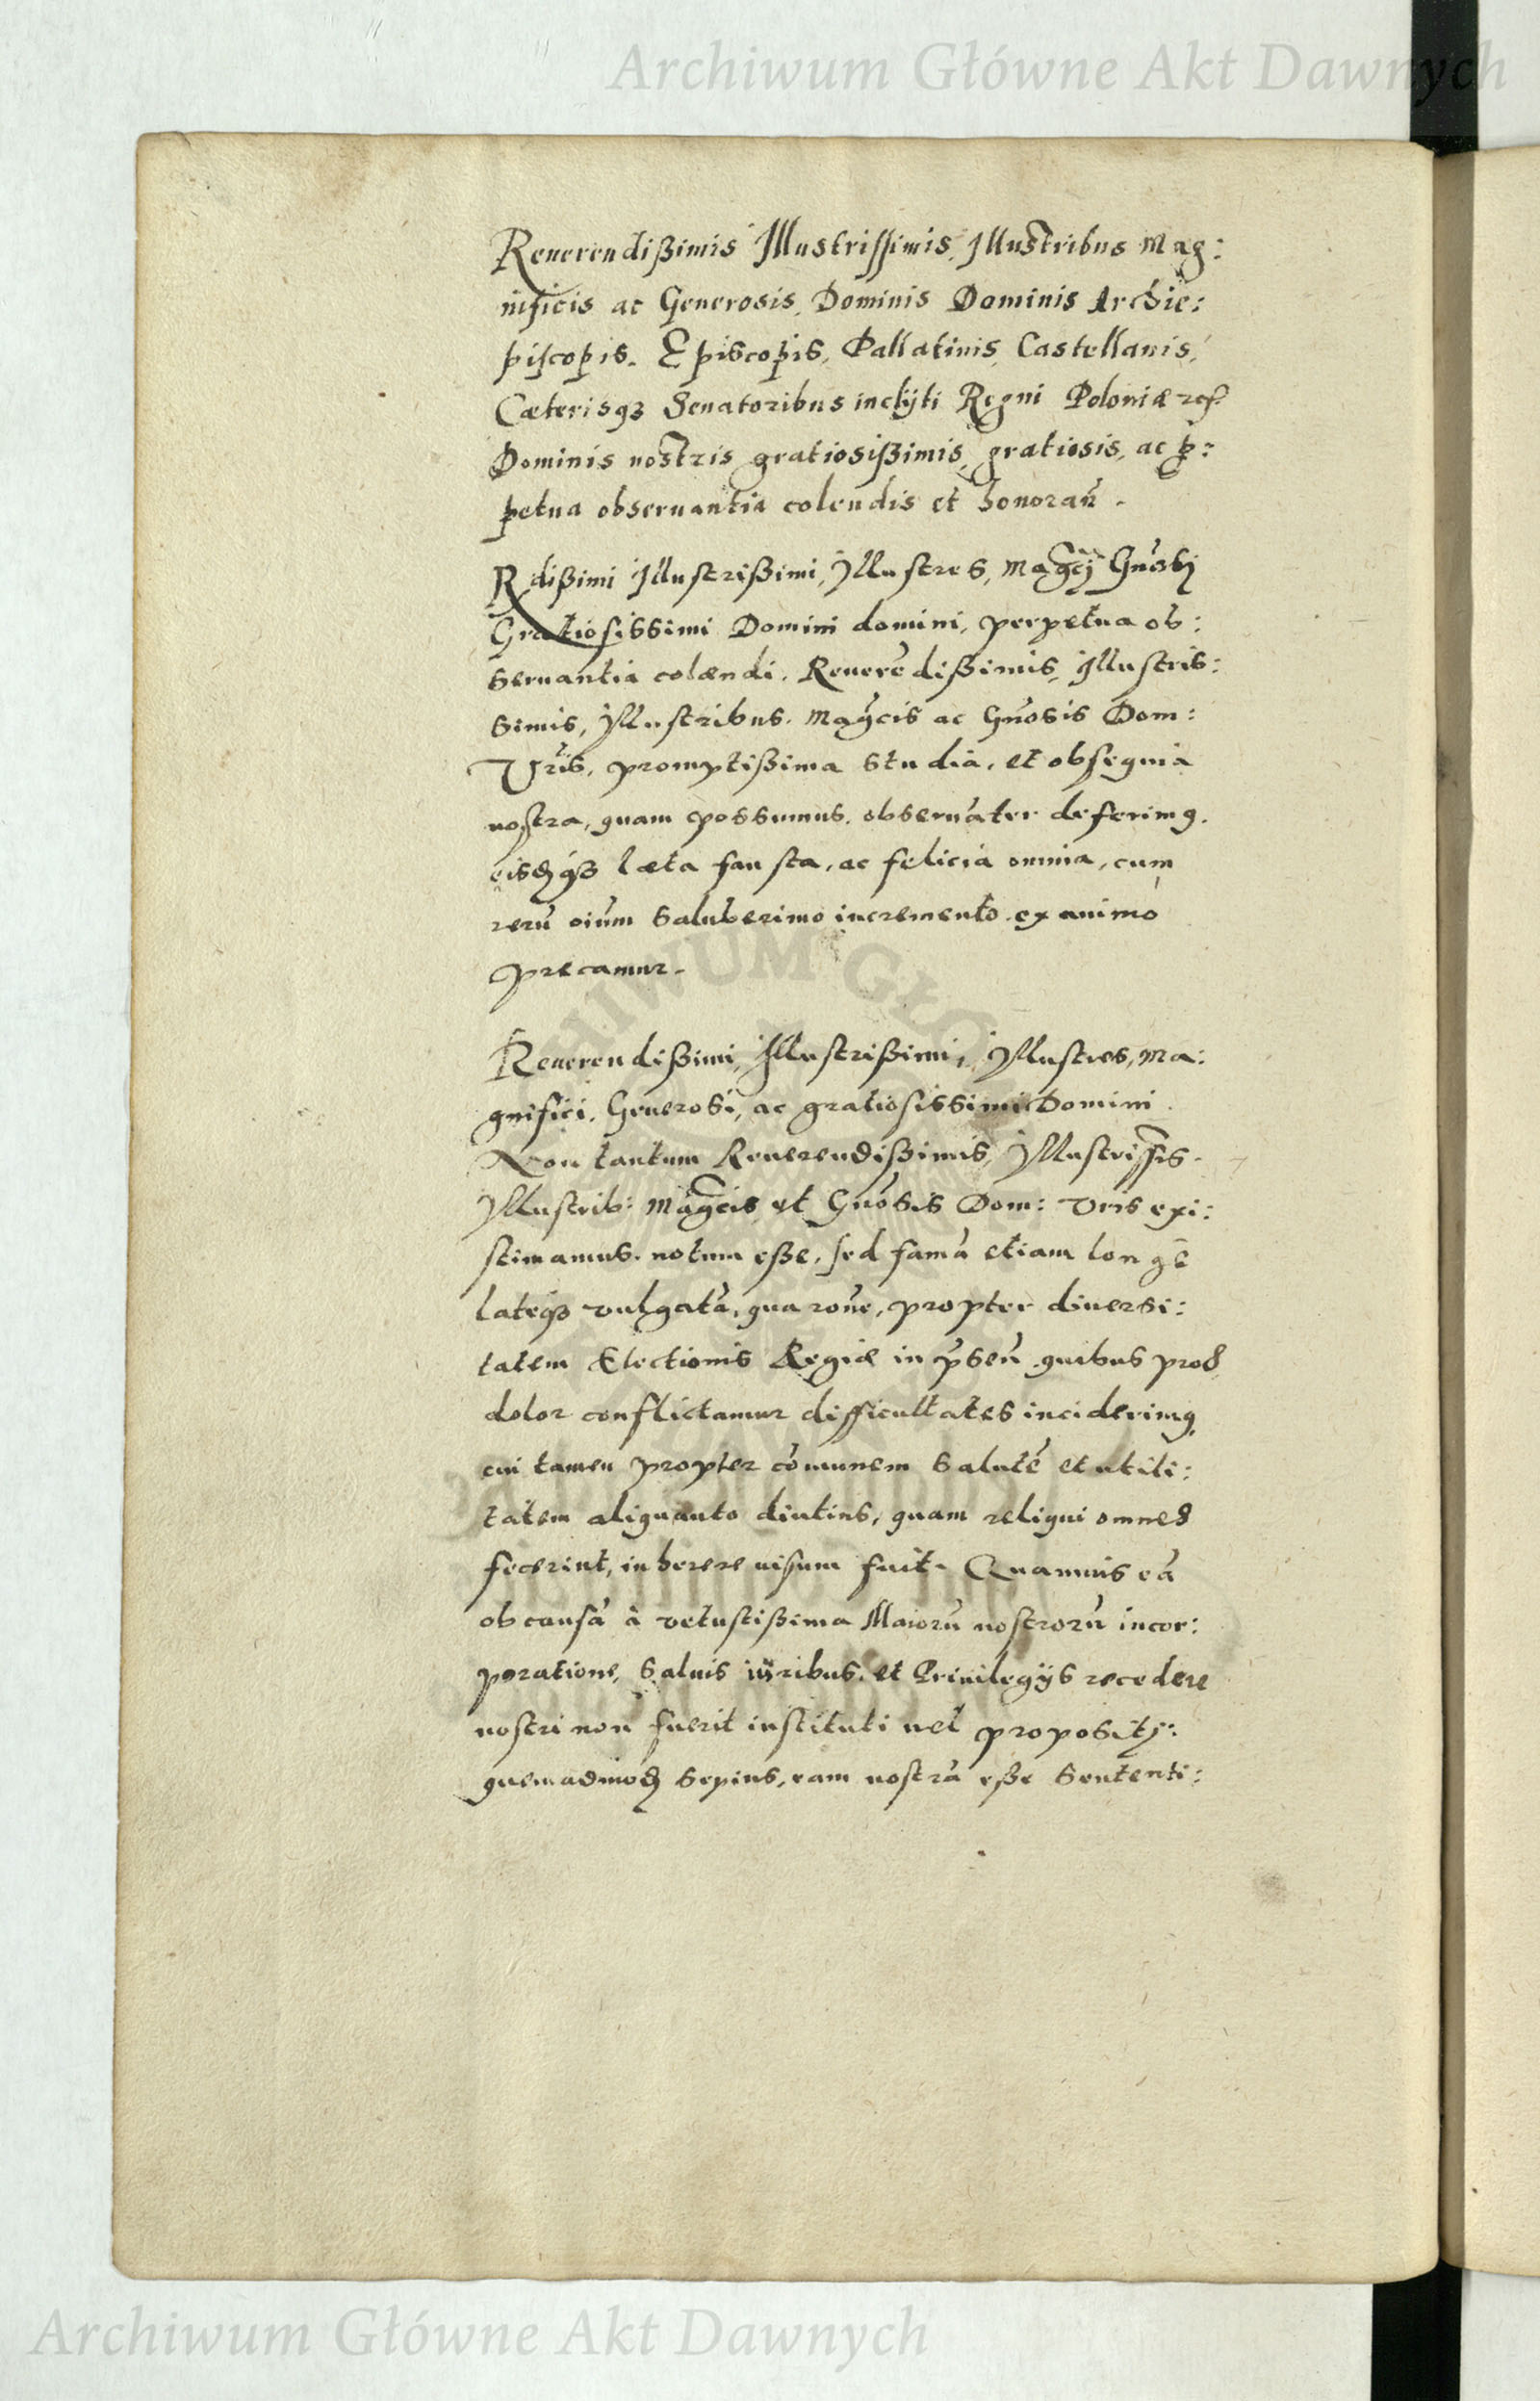 Archiwum Główne Akt Dawnych
Reuerendißimis Illustrissimis, Illustribus Mag:
nificis ac Generosis, Dominis Dominis Archie:
piscopis. Episcopis, Pallatinis, Castellanis,
Cæterisqȝ Senatoribus inclÿti Regni Poloniæ
Dominis nostris gratiosißimis, gratiosis, ac ꝑ:
petua obseruantia colendis et honorañ.
Rdißimi Illustrißimi, Illustres, Magcij Gnosi
Gratiosissimi Domini domini, perpetua ob:
seruantia colændi. Reuerēdißimis, Illustris:
simis, Illustribus. Magcis ac Gnosis Dom:
Vris, promptißima studia, et obsequia
nostra, quam possumus. obseruāter deferimꝰ.
eisdēqȝ læta fausta, ac felicia omnia, cum
rerū oium saluberimo incremento. ex animo
precamur.
Reuerendißimi, Illustrißimi, Illustres, Ma:
gnifici, Generosi, ac gratiosissimi Domini.
Non tantum Reuerendißimis, Illustrissis.
Illustrib: Magcis et Gnosis Dom: Vris exi:
stimamus. notum eße, sed famā etiam longē
lateqȝ vulgatū, qua rone, propter diuersi:
tatem Electionis Regiæ in pñsen quibus proh
dolor conflictamur difficultates inciderimꝰ,
cui tamen propter cōmunem salutē et utili:
tatem aliquanto diutius, quam reliqui omnes
fecerint, inherere uisum fuit. Quamuis eā
ob causā à vetustißima Maiorū nostrorū incor:
poratione, saluis iuribus, et Priuilegijs recedere
nostri non fuerit instituti uel propositj:
quemadmodū sepius, eam nostrā eße sententi:
ARCHIWUM GŁÓWNE
Archiwum Główne Akt Dawnych